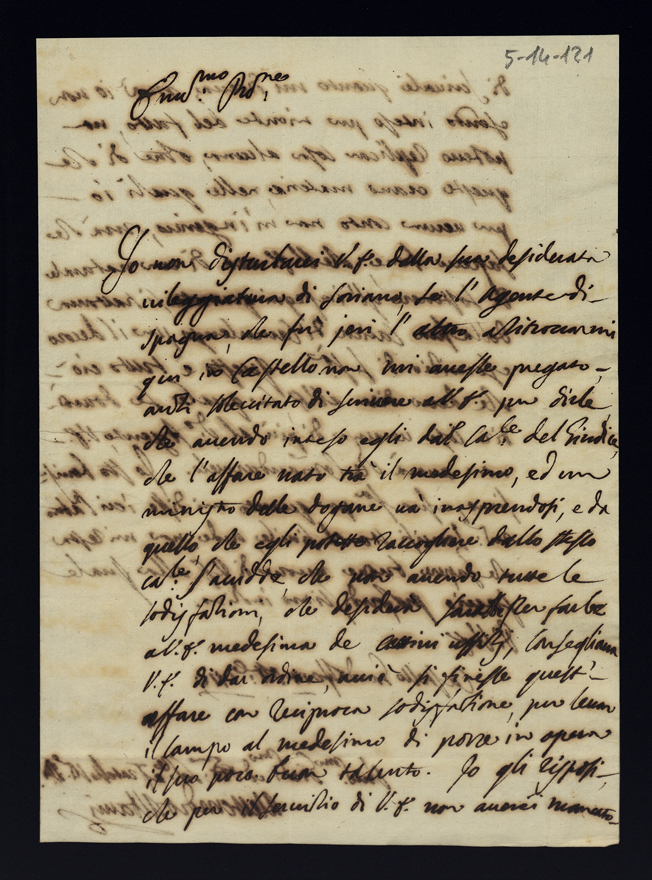 5-14-121
Em.mo P.rone
Io non disturbarei V.E. dalla sua desiderata
villeggiatura di Soriano, se l'Agente di
Spagna, che fu jeri l'altro a ritrovarmi
qui in Castello non mi avesse pregato,
anzi sollecitato di scrivere all'E.V. per dirle
che avendo inteso egli dal Ca.le del Giudice,
che l'affare nato trà il medesimo, ed un
ministro delle dogane và inasprendosi, e da
quello che egli potette raccogliere dallo stesso
Ca.le s'avidde, che non avendo tutte le
sodisfazioni, che desidera per farle
a V.E. medesima de cattivi uffizj, consegliava
V.E. di dar ordine, acciò si finisse quest'
affare con reciproca sodisfazione, per levar
il campo al medesimo di porre in opera
il suo poco buon talento. Io gli risposi,
che per servitio di V.E. non averei mancato